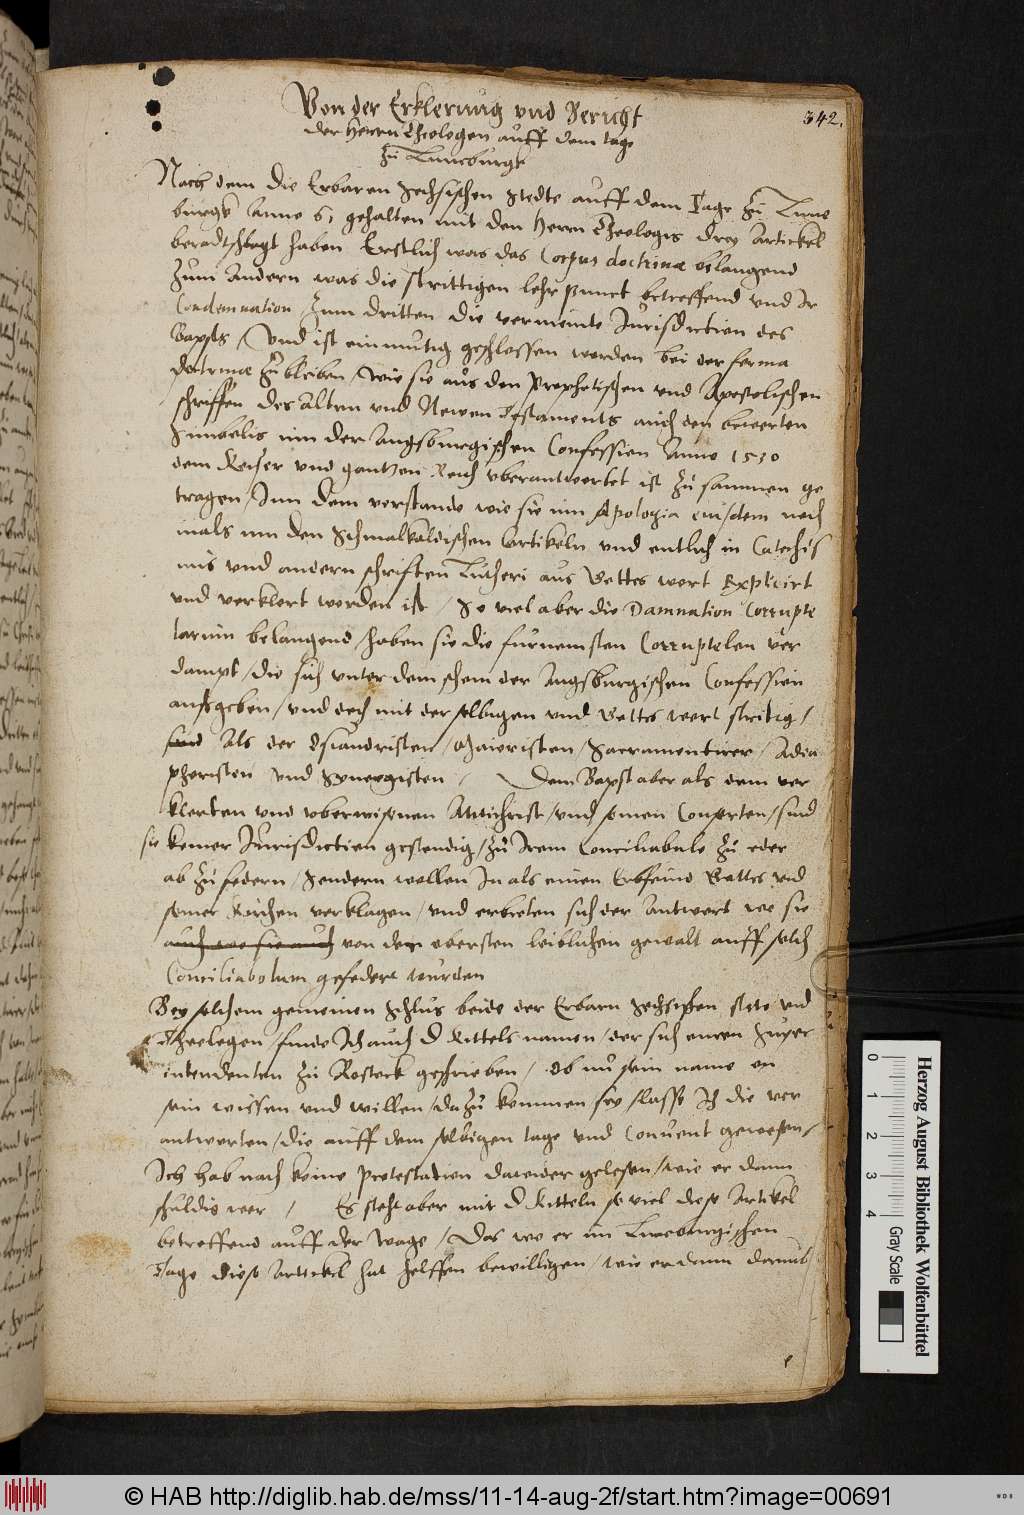 342.
Von der Erklerung vnd Bericht
der Herrn Theologen auff dem tage
zu Luneburgk
Nach dem die Erbaren Sechsischen Stedte auff dem Tage zu Lune
burgk Anno 61 gehalten mit den Herrn Theologis drey Artickel
beradtschlagt haben Erstlich was das Corpus doctrinæ belangend
zum andern was die strittigen lehr punct betreffend vnd Ir
Condemnation zum dritten die vermeinte Jurisdiction des
Bapsts / Vnd ist einmutig geschlossen worden bei der forma
doctrinæ zu bleiben / wie sie aus den Prophetischen vnd Apostolischen
schrifften des Alten vnd Newen Testaments auch den bewerten
Simbolis inn der Augsburgischen Confession Anno 1530
dem Keiser vnd gantzen Reich vberantwortet ist zu sammen ge
tragen / Inn dem verstande wie sie inn Apologia eiusdem noch
mals inn den Schmalkaldischen Artikeln vnd entlich in Catechis
mis vnd andern schrifften Lutheri aus Gottes wort Explicirt
vnd verklert worden ist / So viel aber die Damnation Corrupte
larum belangend / haben sie die furnemsten Corruptelen ver
dampt / die sich vnter dem schein der Augsburgischen Confession
ausgeben / vnd doch mit derselbigen vnd Gottes wort streitig /
sind Als der Osiandristen / Maioristen / Sacramentirer / Adia
phoristen vnd Synergisten / Dem Bapst aber als dem ver
klerten vnd vberwisenen Antichrist / vnd seinen Consorten / sind
sie keiner Jurisdiction gestendig / zu Irem Conciliabulo zu oder
ab zu fodern / Sondern wollen In als einen Erbfeind Gottes vnd
seiner Kirchen verklagen / vnd erbieten sich der Antwort wo sie
auch wo sie auch von der obersten leiblichen gewalt auff solch
Conciliabolum gefodert wurden
Bey solchem gemeinen Schlus beide der Erbarn Sechsischen stete vnd
Theologen / finde Ich auch D Kittels namen / der sich einen Super
intendenten zu Rostock geschrieben / Ob nu sein name on
sein wissen vnd willen / dazu kommen sey / lasse Ich die ver
antworten / die auff dem selbigen tage vnd Conuent gewesen /
Ich hab nach keine Protestation darwider gelesen / wie er dann
schuldig wer / Es steht aber mit D Kitteln so viel diese Artikel
betreffend auff der wage / Das wo er im Luneburgischen
Tage diese Artickel hat helffen bewilligen / wie er dann damit
Herzog August Bibliothek Wolfenbüttel
0 1 2 3 4
Gray Scale
© HAB http://diglib.hab.de/mss/11-14-aug-2f/start.htm?image=00691